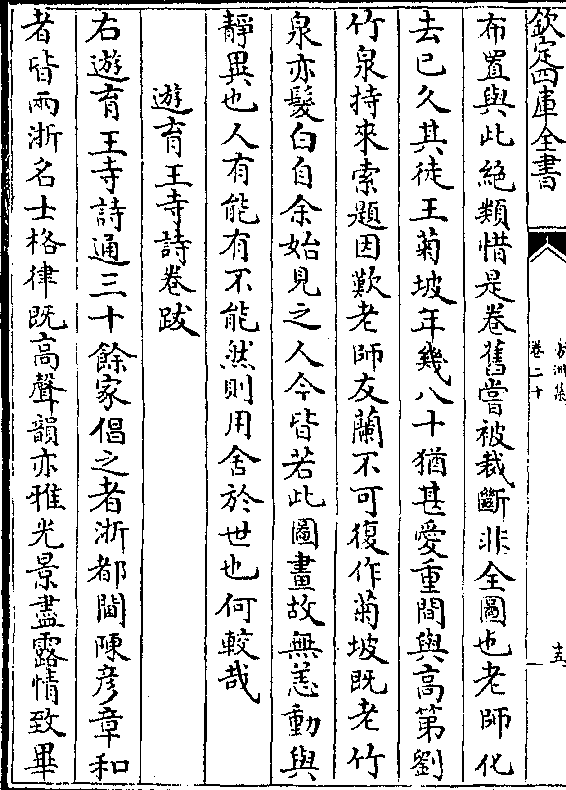 欽定四庫全書
方洲集
卷二十
十五
布置與此絶類惜是卷舊嘗被裁斷非全圖也老師化
去已久其徒王菊坡年幾八十猶甚愛重間與高第劉
竹泉持來索題因歎老師友蘭不可復作菊坡既老竹
泉亦髮白自余始見之人今皆若此圖畫故無恙動與
靜異也人有能有不能然則用舍於世也何較哉
遊育王寺詩卷跋
右遊育王寺詩通三十餘家倡之者浙都閫陳彦章和
者皆兩浙名士格律既高聲韻亦雅光景盡露情致畢